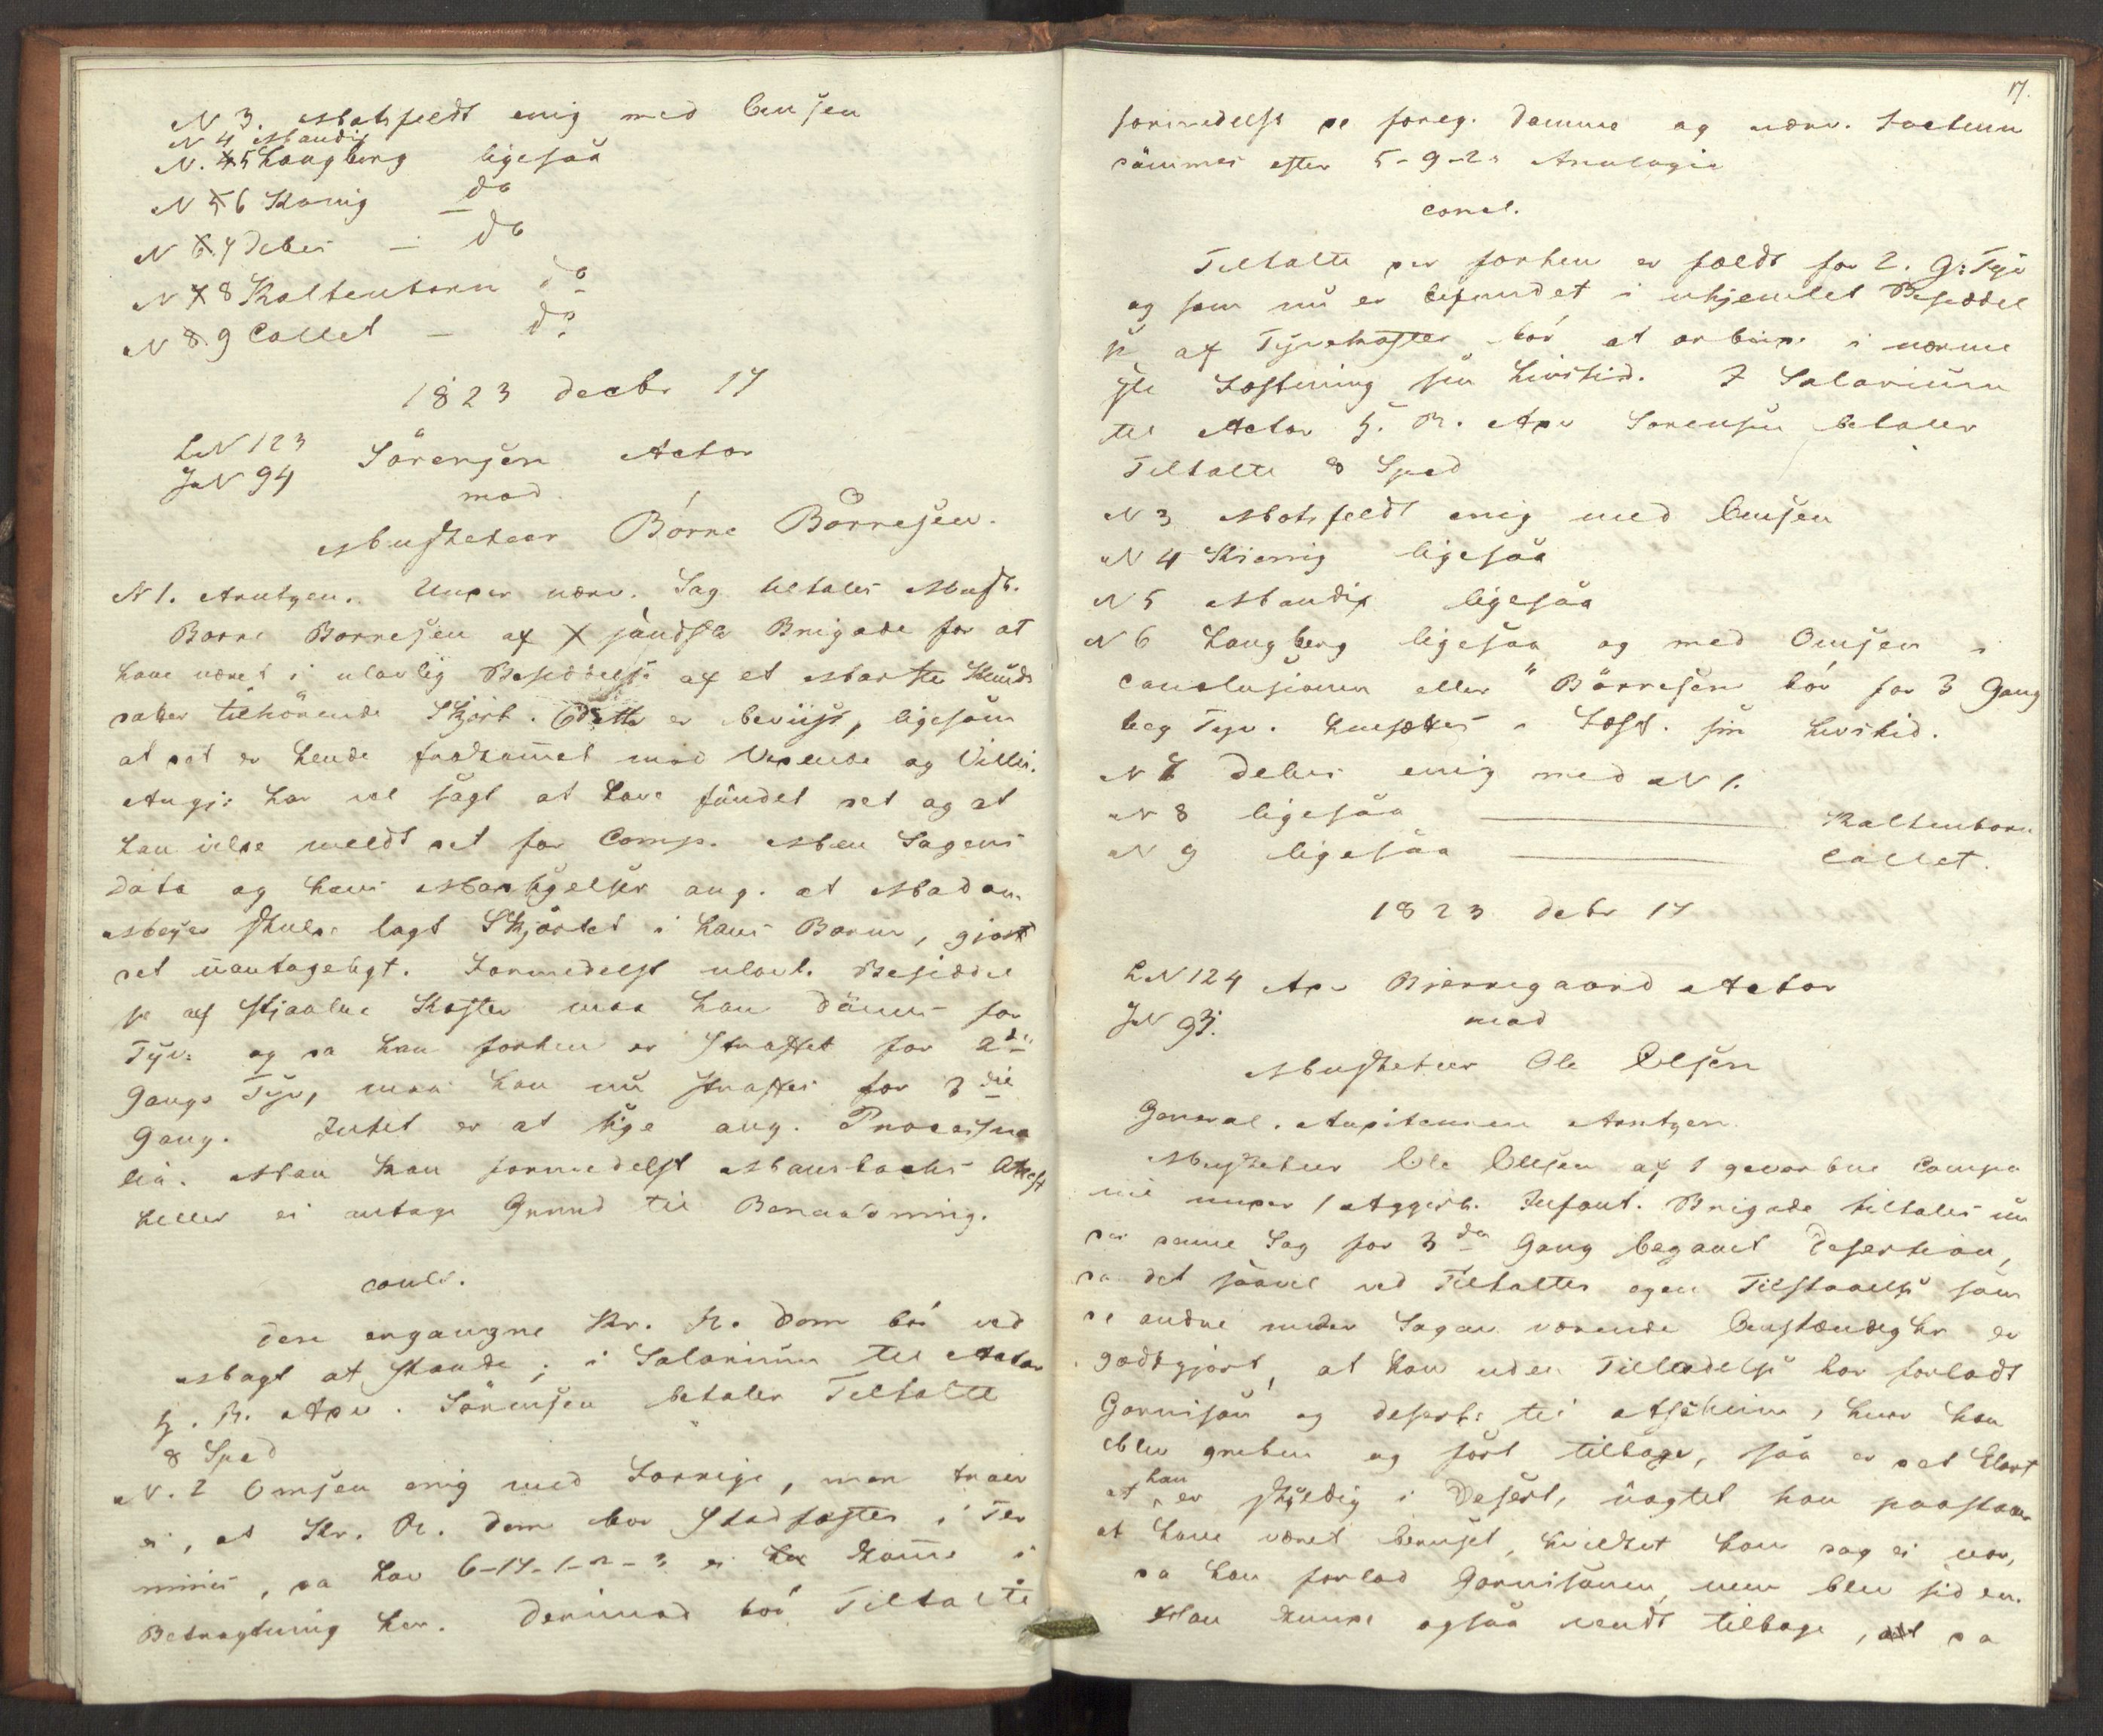 N 3. Motzfeldt enig med Omsen
N 4 Mandix
N. 5 Langberg ligesaa
N 6 Konig — do
N 7 Debes — do
N 8 Kaltenborn do
N 9 Collet — do
1823 decbr 17
LN 123
JN 94 Sörensen Actor
mod
Musketeer Börre Börresen.
N 1. Arntzen. Under nærv. Sag tiltales Musk.
Borre Borresen af söndfj. Brigade for at
have været i ulovlig Besiddelse af et Marthe Knuds
datter tilhörende Skjört. Dette er beviist, ligesom
at det er hende frakommet mod Vidende og Villie.
Angj: har vel sagt at have fundet det og at
han vilde meldt det for Comp. Men Sagens
Data og hans Modsigelser ang. at Madam
Meyer skulde lagt Skjörtet i hans Borum, gjort
det uantageligt. Formedelst ulovl. Besiddel
se af stjaalne Koster maa han dömmes for
Tyv: og da han forhen er straffet for 2den
Gangs Tyv, maa han nu straffes for 3die
Gang. Intet er at sige ang. Processua
lia. Man kan formedelst Mansbachs Attest
heller ei antage Grund til Benaadning.
concls.
Den ergangne Kr. R. Dom bör ved
Magt at stande; i Salarium til Actor
H. R. Adv. Sörensen betaler Tiltalte
8 Spd
N. 2 Omsen enig med Forrige, men troer
ei, at Kr. R. Dom bor stadfæstes i Ter
minis, da Lov 6-17-1-2-3 ei komme i
Betragtning her. Derimod bör Tiltalte
17.
formedelst de foreg. Domme og nærv. Factum
dömmes efter 5-9-2s Analogie
concl.
Tiltalte der forhen er fældt for 2. G: Tyv
og som nu er befundet i uhjemlet Besiddel
se af Tyvekoster bör at arbeide i nærme
ste Fæstning sin Livstid. I Salarium
til Actor H. R. Adv Sorensen betaler
Tiltalte 8 Spd
N 3 Motzfeldt enig med Omsen
N 4 Kiønig ligesaa
N 5 Mandix ligesaa
N 6 Langberg ligesaa og med Omsen i
Conclusionen eller "Börresen bör for 3 Gang
beg Tyv. hensættes i Fæst. sin Livstid.
N 7 Debes enig med N 1.
N 8 ligesaa ——— Kaltenborn
N 9 ligesaa ——— Collet.
1823 debr 17
LN 124 Adv Bjerregaard Actor
JN 93. mod
Musketeer Ole Olsen
General-Auditeuren Arntzen.
Musketeer Ole Olsen af 1 gevorbne Compa
nie under 1 Aggersh. Infant. Brigade tiltales un
der denne Sag for 3die Gang begaaet Desertion,
da det saavel ved Tiltaltes egen Tilstaaelse som
de andre under Sagen værende Omstændighr er
godtgjort, at han uden Tilladelse har forladt
Garnison og desert: til , hvor han
blev greben og fört tilbage, saa er det klart
at han er skyldig i Desert, uagtet han paastaaer
at have været beruset, hvilket han dog ei var,
da han forlod Garnisonen, men blev siden.
Han kunde ogsaa vendt tilbage, da